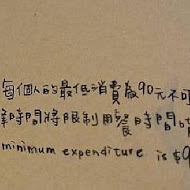 每個人的最低消費為90元不可
時間將限制用餐時間
minimum expenditure is $9